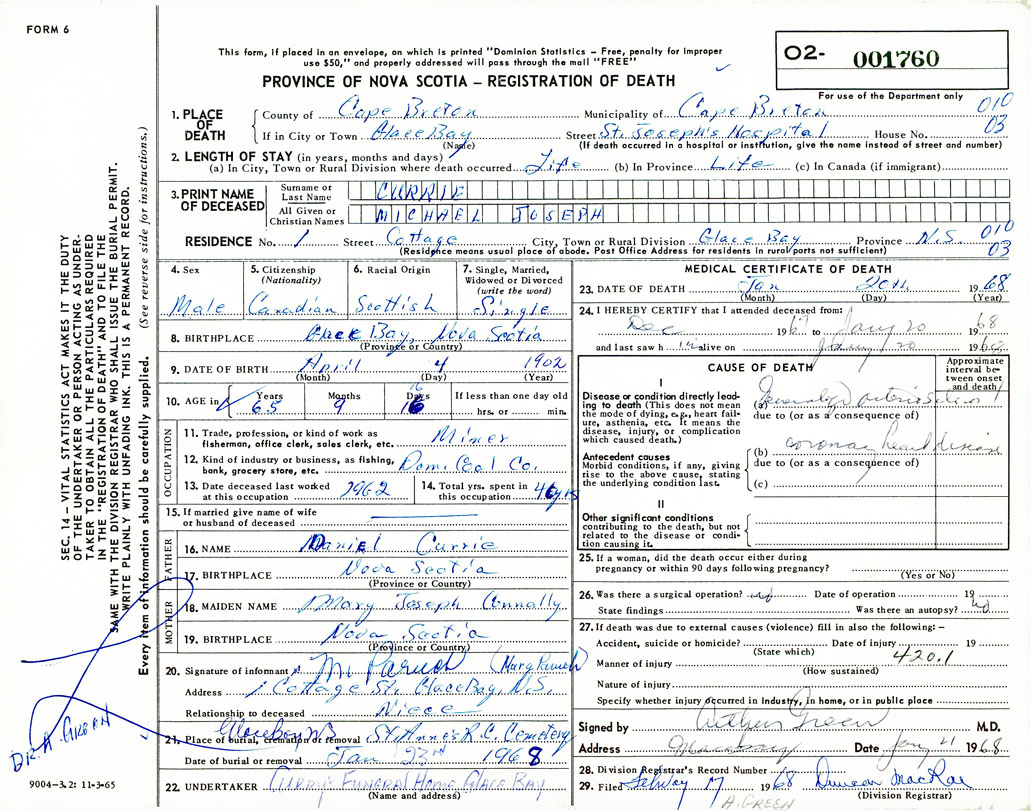 FORM 6
This form, if placed in an envelope, on which is printed "Dominion Statistics – Free, penalty for improper
use $50," and properly addressed will pass through the mail "FREE"
PROVINCE OF NOVA SCOTIA – REGISTRATION OF DEATH
O2- 001760
For use of the Department only
1. PLACE OF DEATH County of Cape Breton Municipality of Cape Breton 010
If in City or Town Glace Bay Street St. Joseph's Hospital House No. 03
(Name) (If death occurred in a hospital or institution, give the name instead of street and number)
2. LENGTH OF STAY (in years, months and days)
(a) In City, Town or Rural Division where death occurred Life (b) In Province Life (c) In Canada (if immigrant)
3. PRINT NAME OF DECEASED Surname or Last Name CURRIE
All Given or Christian Names MICHAEL JOSEPH
RESIDENCE No. 1 Street Cottage City, Town or Rural Division Glace Bay Province N.S. 010
(Residence means usual place of abode. Post Office Address for residents in rural parts not sufficient) 03
4. Sex
Male
5. Citizenship
(Nationality)
Canadian
6. Racial Origin
Scottish
7. Single, Married,
Widowed or Divorced
(write the word)
Single
8. BIRTHPLACE Glace Bay, Nova Scotia
(Province or Country)
9. DATE OF BIRTH April 4 1902
(Month) (Day) (Year)
10. AGE in Years Months Days If less than one day old
16
65 9 16 hrs. or min.
OCCUPATION
11. Trade, profession, or kind of work as
fisherman, office clerk, sales clerk, etc. Miner
12. Kind of industry or business, as fishing,
bank, grocery store, etc. Dom. Coal Co.
13. Date deceased last worked
at this occupation 1962
14. Total yrs. spent in
this occupation yrs
15. If married give name of wife
or husband of deceased
FATHER
16. NAME Daniel Currie
17. BIRTHPLACE Nova Scotia
(Province or Country)
MOTHER
18. MAIDEN NAME Mary Joseph Connally
19. BIRTHPLACE Nova Scotia
(Province or Country)
20. Signature of informant M. Parush (Mary Parush)
Address 1 Cottage St. Glace Bay, N.S.
Relationship to deceased Niece
Glace Bay NS
21. Place of burial, cremation or removal St. Anne's R.C. Cemetery
Date of burial or removal Jan 23rd 1968
22. UNDERTAKER CURRY'S FUNERAL HOME GLACE BAY
(Name and address)
MEDICAL CERTIFICATE OF DEATH
23. DATE OF DEATH Jan 20th 1968
(Month) (Day) (Year)
24. I HEREBY CERTIFY that I attended deceased from:
Dec 1967 to Jany 20 1968
and last saw h im alive on Jany 20 1968
CAUSE OF DEATH
Approximate interval between onset and death
I
Disease or condition directly leading to death (This does not mean the mode of dying, e.g., heart failure, asthenia, etc. It means the disease, injury, or complication which caused death.)
(a) Generalized
due to (or as a consequence of)
Antecedent causes
Morbid conditions, if any, giving rise to the above cause, stating the underlying condition last.
(b) coronary heart disease
due to (or as a consequence of)
(c)
II
Other significant conditions
contributing to the death, but not related to the disease or condition causing it.
25. If a woman, did the death occur either during
pregnancy or within 90 days following pregnancy?
(Yes or No)
26. Was there a surgical operation? no Date of operation 19
State findings Was there an autopsy? No
27. If death was due to external causes (violence) fill in also the following:–
Accident, suicide or homicide? Date of injury 19
(State which) 420.1
Manner of injury
(How sustained)
Nature of injury
Specify whether injury occurred in Industry, in home, or in public place
Signed by Arthur Green M.D.
Address Glace Bay Date Jany 21 1968
28. Division Registrar's Record Number
29. Filed 17 1968 Duncan MacRae
(Division Registrar)
A. GREEN
SEC. 14 – VITAL STATISTICS ACT MAKES IT THE DUTY
OF THE UNDERTAKER OR PERSON ACTING AS UNDER-
TAKER TO OBTAIN ALL THE PARTICULARS REQUIRED
IN THE "REGISTRATION OF DEATH" AND TO FILE THE
SAME WITH THE DIVISION REGISTRAR WHO SHALL ISSUE THE BURIAL PERMIT.
WRITE PLAINLY WITH UNFADING INK. THIS IS A PERMANENT RECORD.
Every item of information should be carefully supplied. (See reverse side for instructions.)
DR. A. GREEN
9004–3.2: 11-3-65